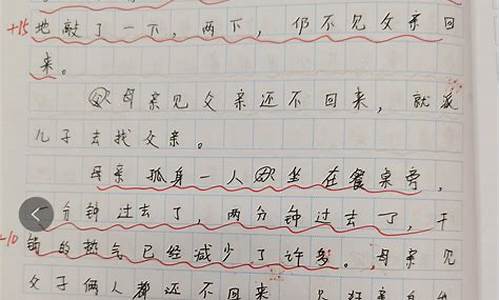 +15 地敲了一下,两下,仍不见父亲回
来。
母亲见父亲还不回来,就派
儿子去找父亲。
母亲孤身一人坐在餐桌旁,
分钟过去了,两分钟过去了,干
+10 锅的热气已经减少了许多。母亲见
父子俩人都还不回来